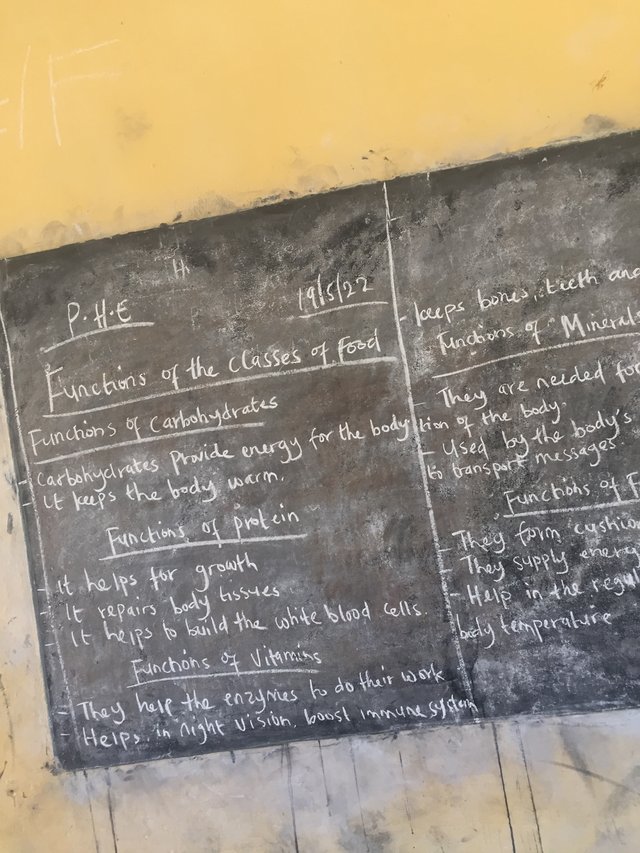 P.H.E
19/5/22
Functions of the Classes of Food
Functions of Carbohydrates
- Carbohydrates provide energy for the body
- it keeps the body warm.
Functions of protein
- It helps for growth
- It repairs body tissues
- It helps to build the white blood cells.
Functions of Vitamins
- They help the enzymes to do their work
- Helps in night vision, boost immune system
- keeps bones, teeth and
Functions of Minerals
- They are needed for
tion of the body.
- Used by the body's
to transport messages
Functions of F
- They form cushion
- They supply energ
- Help in the regul
body temperature